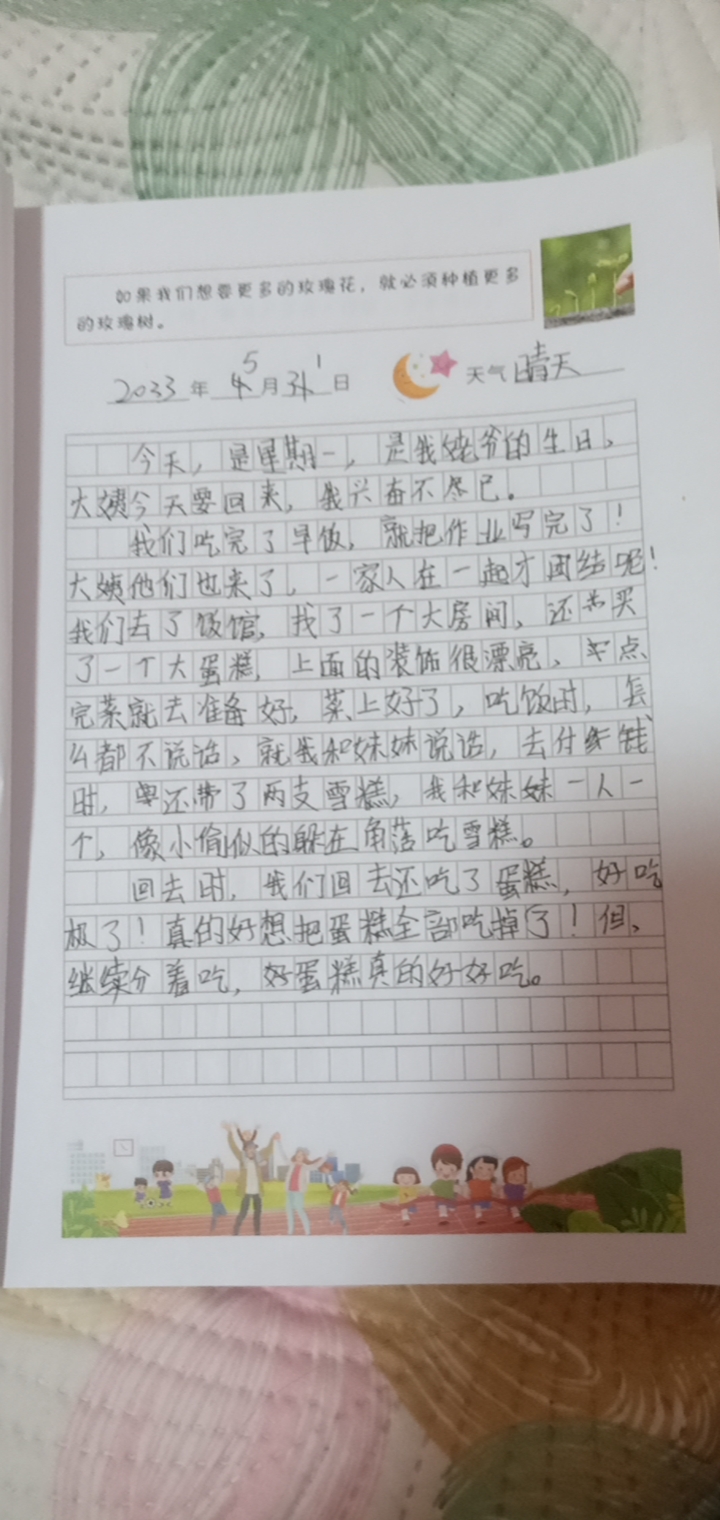 如果我们想要更多的玫瑰花，就必须种植更多
的玫瑰树。
2033年 5月 1日 天气 晴天
今天，是星期一，是我姥爷的生日、
大姨今天要回来，我兴奋不尽已。
我们吃完了早饭，就把作业写完了！
大姨他们也来了，一家人在一起才团结呢！
我们去了饭馆，找了一个大房间，还买
了一个大蛋糕，上面的装饰很漂亮、点
完菜就去准备好，菜上好了，吃饭时，怎
么都不说话、就我和妹妹说话，去付钱
时，还带了两支雪糕，我和妹妹一人一
个，像小偷似的躲在角落吃雪糕。
回去时，我们回去还吃了蛋糕，好吃
极了！真的好想把蛋糕全部吃掉了！但、
继续分着吃，好蛋糕真的好好吃。